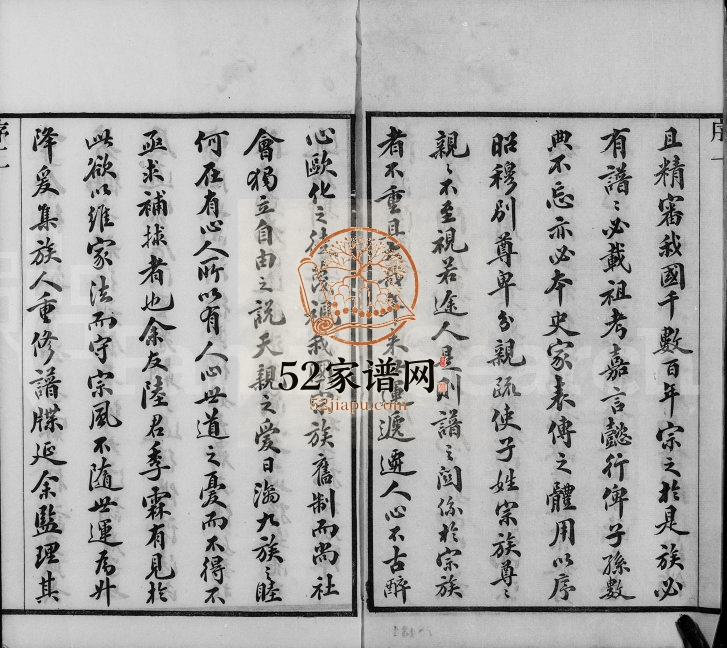 且精審我國千數百年宗之於是族必
有譜〻必載祖考嘉言懿行俾子孫數
典不忘亦必本史家表傳之體用以序
昭穆別尊卑分親疏使子姓宗族尊〻
親〻不至視若途人是則譜之關係於宗族
者不重且 哉年來世運遞遷人心不古醉
心歐化之 族舊制而尚社
會獨立自由之說天親之愛日淪九族之睦
何在有心人所以有人心世道之憂而不得不
亟求補捄者也余友陸君季霖有見於
此欲以維家法而守宗風不隨世運為升
降爰集族人重修譜牒延余監理其
序二
52家谱网
52jiapu.com